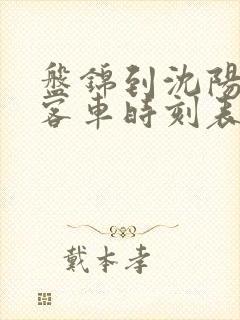 盤錦到沈陽
客車時刻表
戴本孝